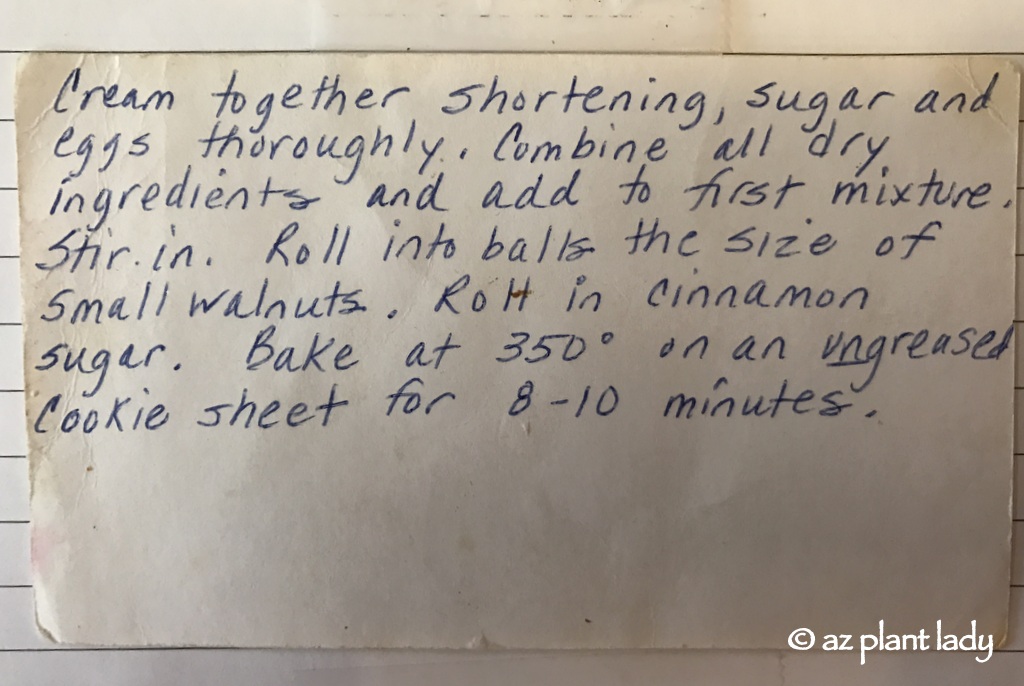 Cream together shortening, sugar and
eggs thoroughly. Combine all dry
ingredients and add to first mixture.
Stir in. Roll into balls the size of
small walnuts. Roll in cinnamon
sugar. Bake at 350° on an ungreased
Cookie sheet for 8-10 minutes.
© az plant lady